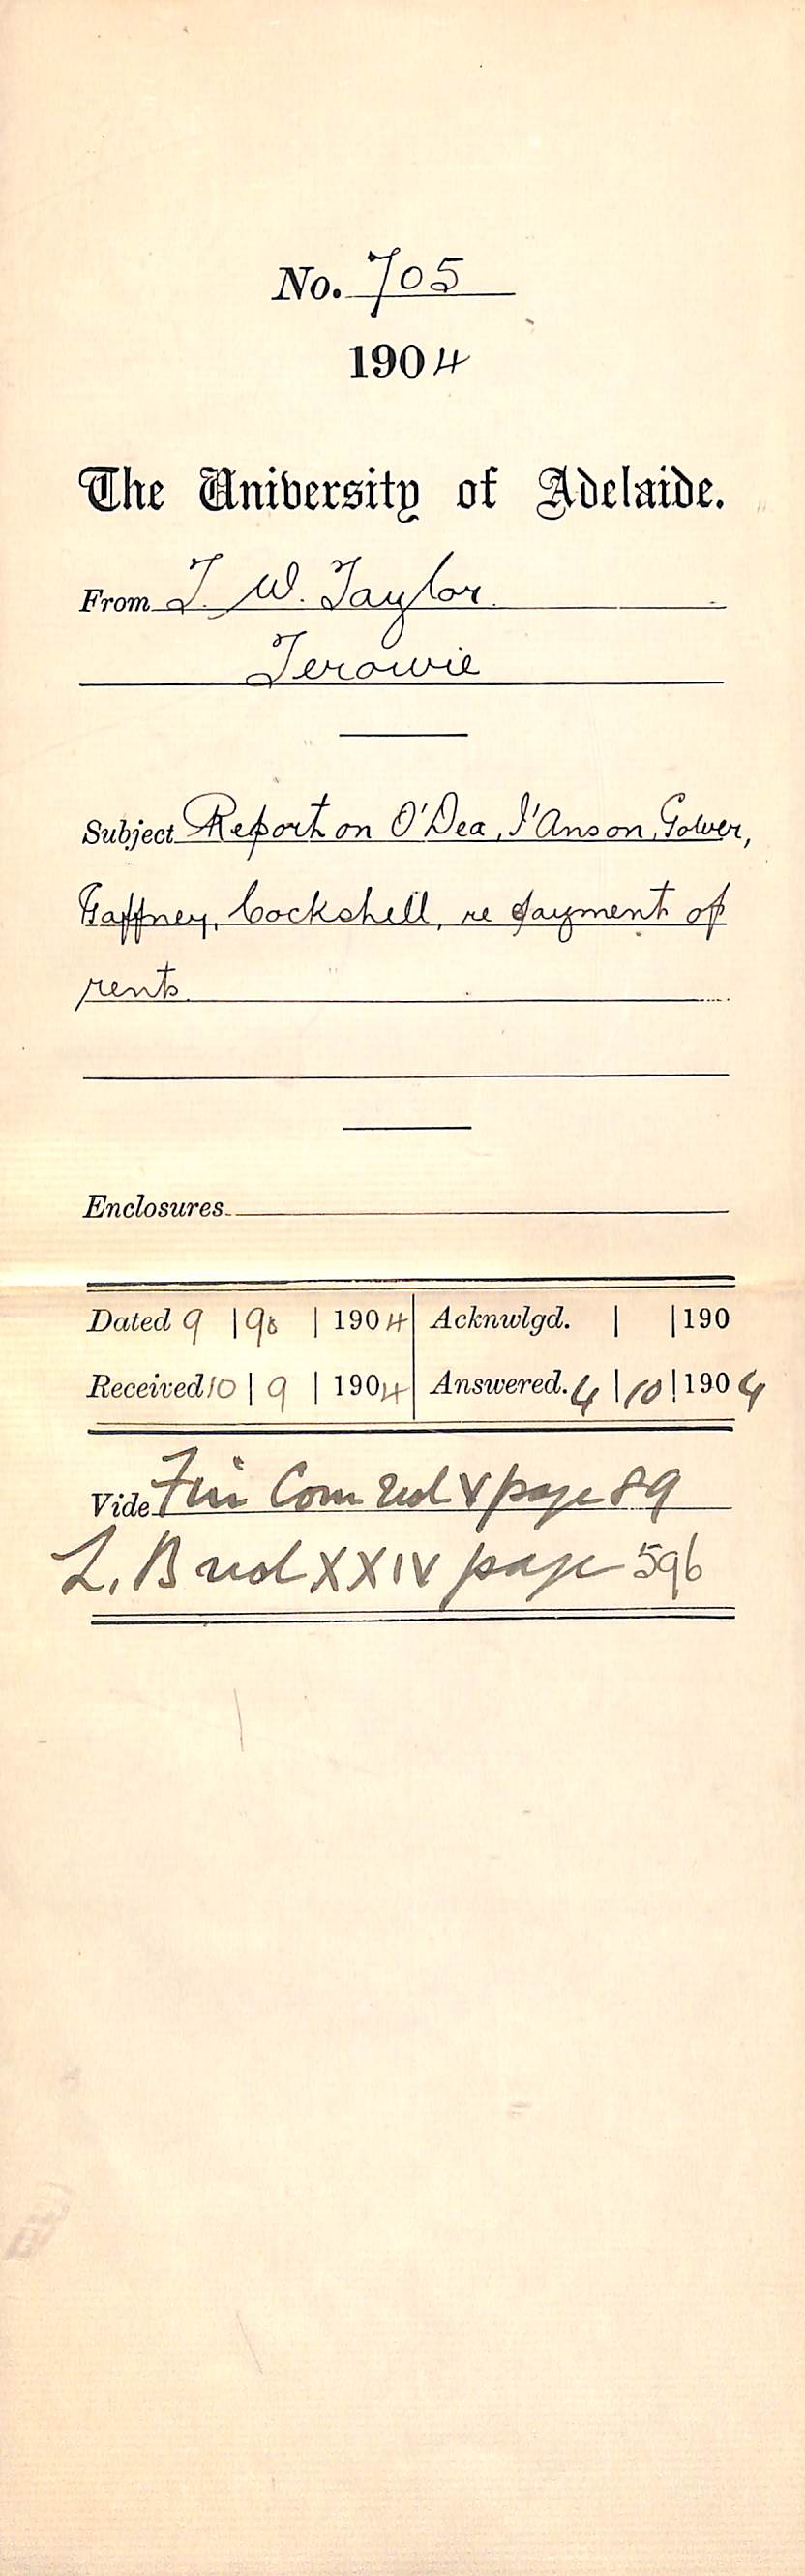 No. 705
1904
The University of Adelaide.
From T. W. Taylor.
Terowie
Subject Report on O'Dea, I'Anson, Gower,
Gaffney, Cockshell, re payment of
rents
Enclosures
Dated 9 | 9 | 1904 Acknwlgd. | | 190
Received 10 | 9 | 1904 Answered. 4 | 10 | 1904
Vide Fin Com vol V page 89
L. B vol XXIV page 596